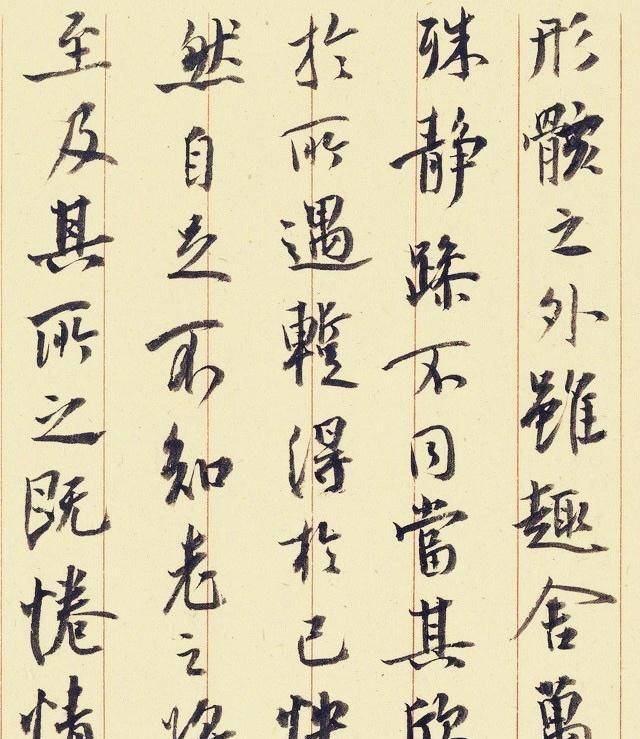 形骸之外雖趣舍萬
殊静躁不同當其欣
於所遇蹔得於己快
然自足不知老之將
至及其所之既惓情